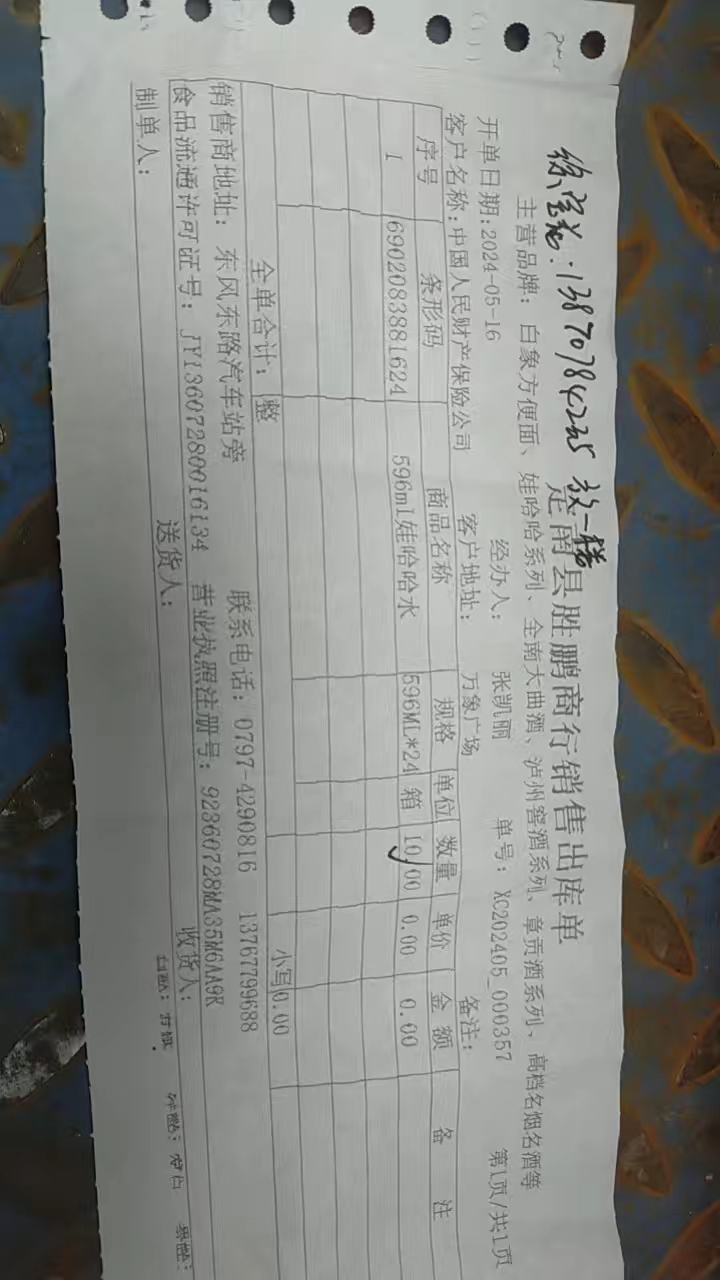 :13870784235 放一楼
定南县胜鹏商行销售出库单
主营品牌：白象方便面、娃哈哈系列、全南大曲酒、泸州窖酒系列、章贡酒系列、高档名烟名酒等
开单日期:2024-05-16 经办人： 张凯丽 单号： XC202405_000357 第1页/共1页
客户名称:中国人民财产保险公司 客户地址： 万象广场 备注：
序号 条形码 商品名称 规格 单位 数量 单价 金额 备注
1 6902083881624 596ml娃哈哈水 596ML*24 箱 10.00 0.00 0.00
全单合计： 整 小写0.00
销售商地址： 东风东路汽车站旁 联系电话： 0797-4290816 13767799688
食品流通许可证号： JY13607280016134 营业执照注册号： 92360728MA35M6AA9R
制单人： 送货人： 收货人：